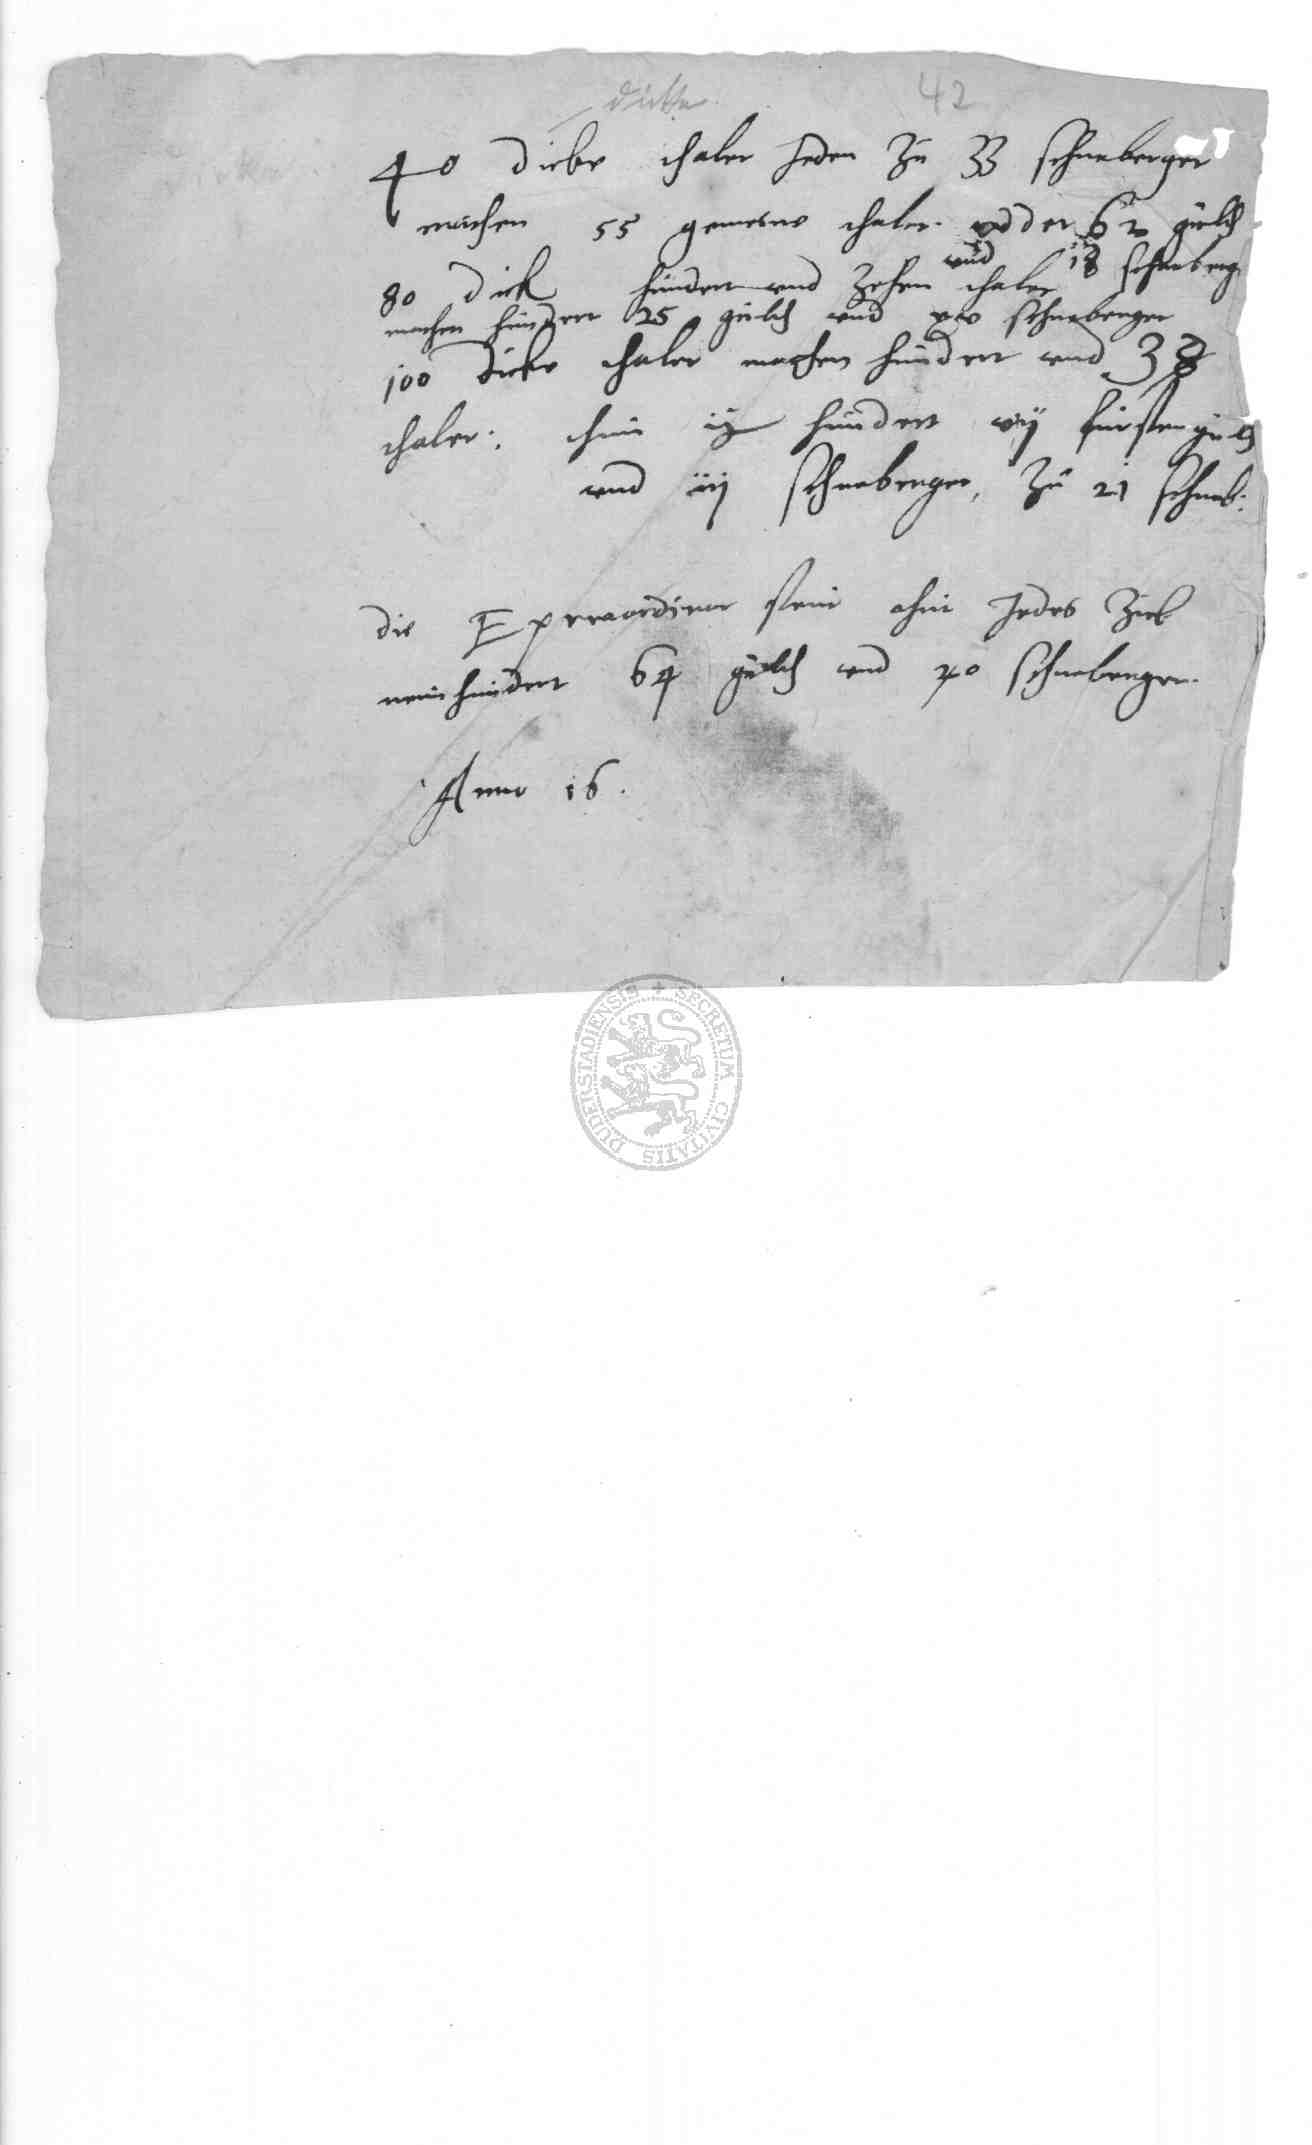 dicke
42
40 dicke thaler Jeden zu 33 schneberger
machen 55 gemeine thaler. odder 62 guld
und 18 schneberg
80 dick hundert und Zehen thaler
machen hundert 25 guld und xv schneberger
100 dicke thaler machen hundert und 38
thaler: thun hundert vij fursten guld
und iij schneberger, zu 21 schneb:
die Extraordinar sein ahn Jedes Ziel
neunhundert 64 guld und 20 schneberger.
Anno 16.
SECRETUM CIVITATIS DUDERSTADIENSIS